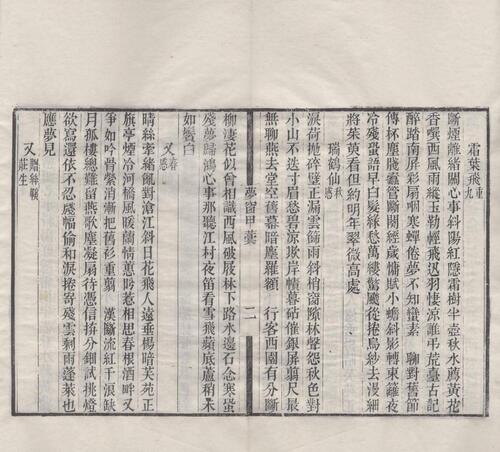 霜葉飛 重九
斷煙離緒關心事斜陽紅隱霜樹半壺秋水薦黃花
香噀西風雨縱玉勒輕飛迅羽悽涼誰弔荒臺古記
醉踏南屏彩扇咽寒蟬倦夢不知蠻素　聊對舊節
傳杯塵牋蠹管斷闋經歲慵賦小蟾斜影轉東籬夜
冷殘蛩語早白髮緣愁萬縷驚飇從捲烏紗去漫細
將茱萸看但約明年翠微高處
瑞鶴仙 秋感
淚荷拋碎璧正漏雲篩雨斜梢窗隙林聲怨秋色對
小山不迭寸眉愁碧涼欺岸幘暮砧催銀屏翦尺最
無聊燕去堂空舊幕暗塵羅額　行客西園有分斷
夢窗甲藁　二
柳淒花似曾相識西風破屐林下路水邊石念寒蛩
殘夢歸鴻心事那聽江村夜笛看雪飛蘋底蘆稍未
如鬢白
又 春感
晴絲牽緒亂對滄江斜日花飛人遠垂楊暗吳苑正
旗亭煙冷河橋風暖蘭情蕙盼惹相思春根酒畔又
爭如吟骨縈消漸把舊衫重翦　淒斷流紅千浪缺
月孤樓總難留燕歌塵凝扇待憑信拚分鈿試挑燈
欲寫還依不忍牋幅偷和淚捲寄殘雲剩雨蓬萊也
應夢見
又 贈絲鞵莊生